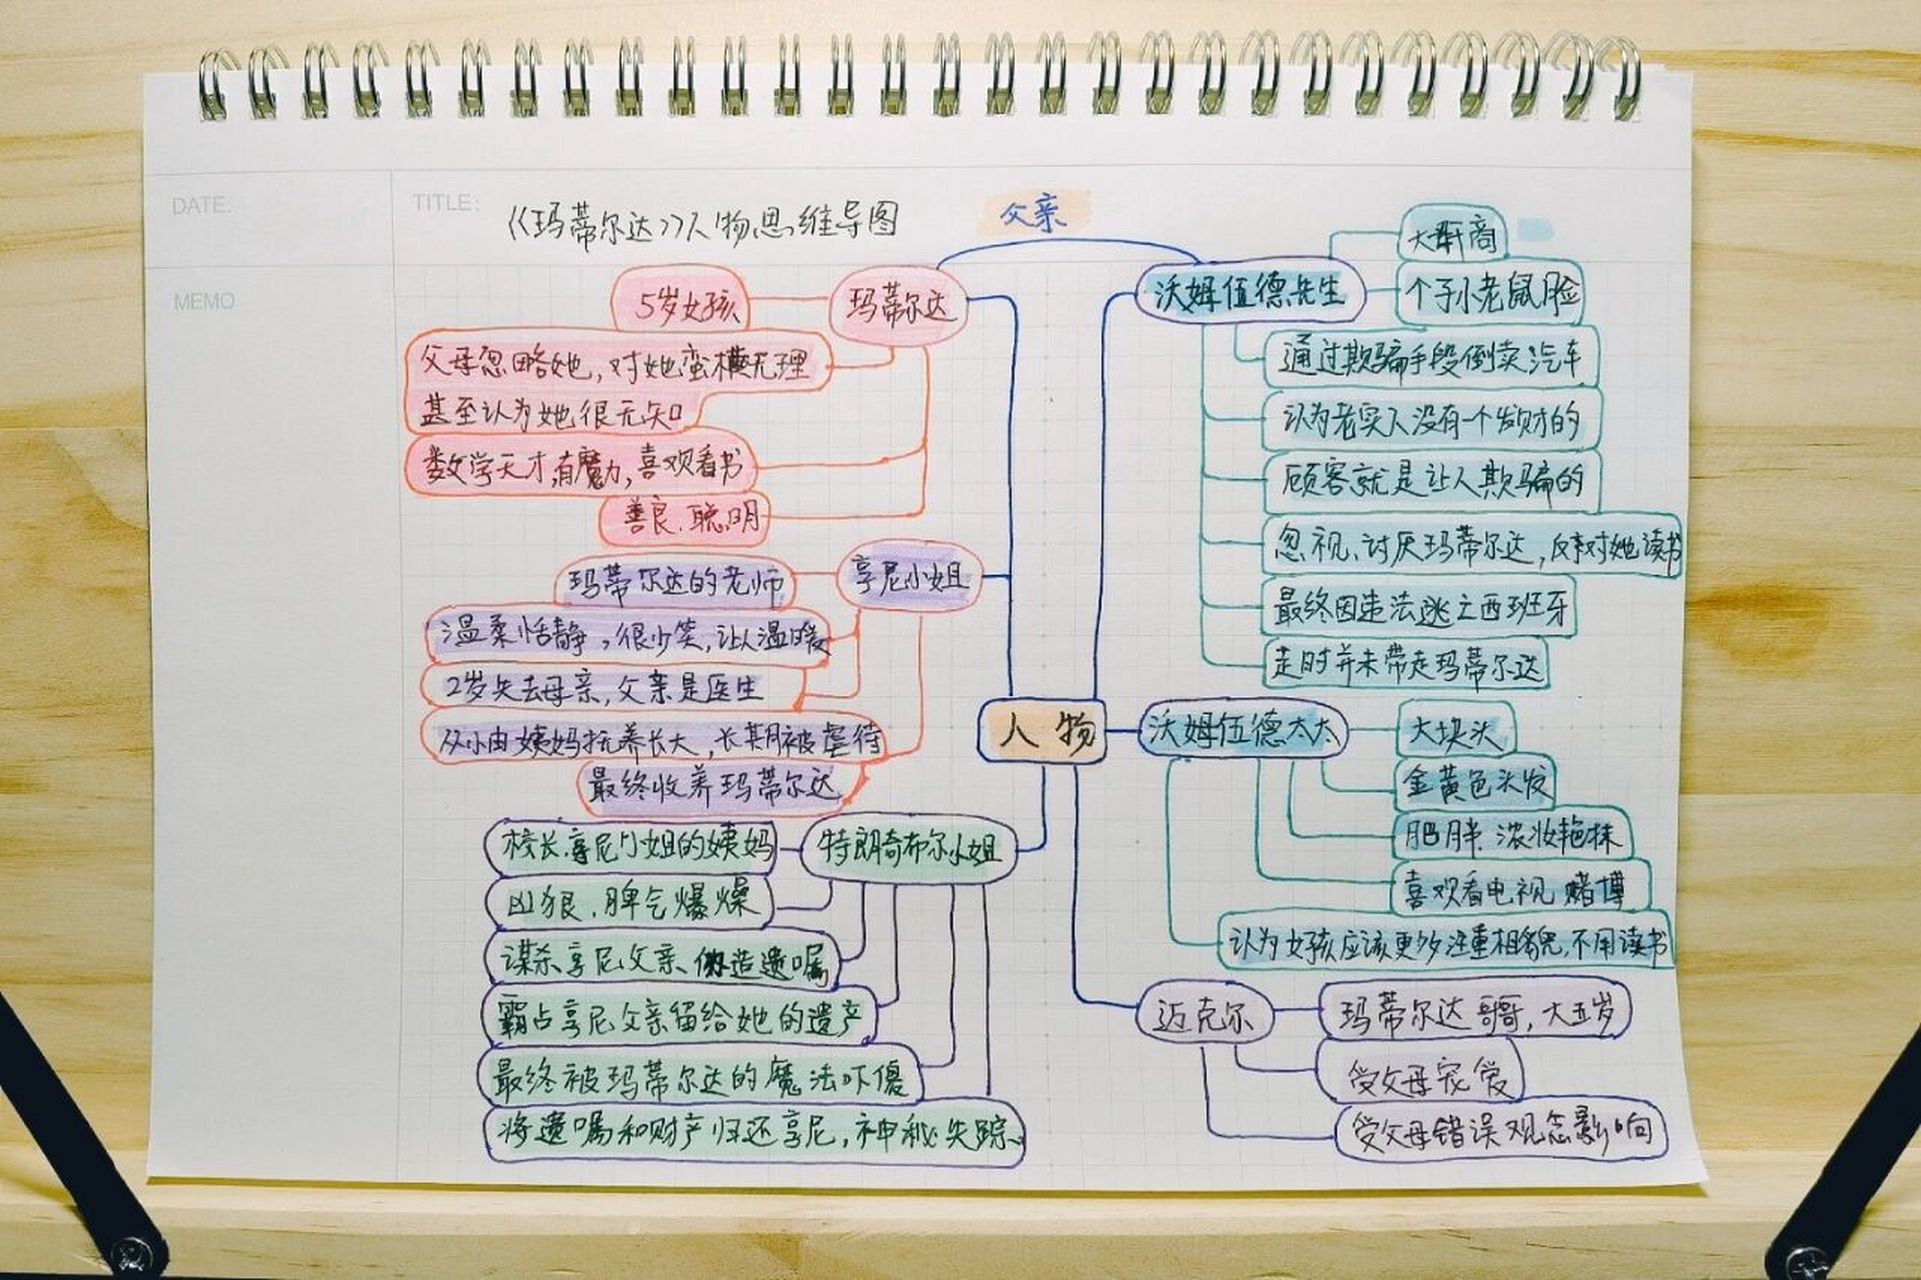 DATE:
TITLE:
《玛蒂尔达》人物思维导图
MEMO
父亲
玛蒂尔达
5岁女孩
父母忽略她,对她蛮横无理
甚至认为她很无知
数学天才,有魔力,喜欢看书
善良、聪明
亨尼小姐
玛蒂尔达的老师
温柔恬静,很少笑,让人温暖
2岁失去母亲,父亲是医生
从小由姨妈抚养长大,长期被虐待
最终收养玛蒂尔达
特朗奇布尔小姐
校长,亨尼小姐的姨妈
凶狠、脾气爆燥
谋杀亨尼父亲、伪造遗嘱
霸占亨尼父亲留给她的遗产
最终被玛蒂尔达的魔法吓傻
将遗嘱和财产归还亨尼,神秘失踪
人物
沃姆伍德先生
大奸商
个子小老鼠脸
通过欺骗手段倒卖汽车
认为老实人没有一个发财的
顾客就是让人欺骗的
忽视、讨厌玛蒂尔达,反对她读书
最终因违法逃亡西班牙
走时并未带走玛蒂尔达
沃姆伍德太太
大块头
金黄色头发
肥胖、浓妆艳抹
喜欢看电视、赌博
认为女孩应该更多注重相貌,不用读书
迈克尔
玛蒂尔达哥哥,大五岁
受父母宠爱
受父母错误观念影响